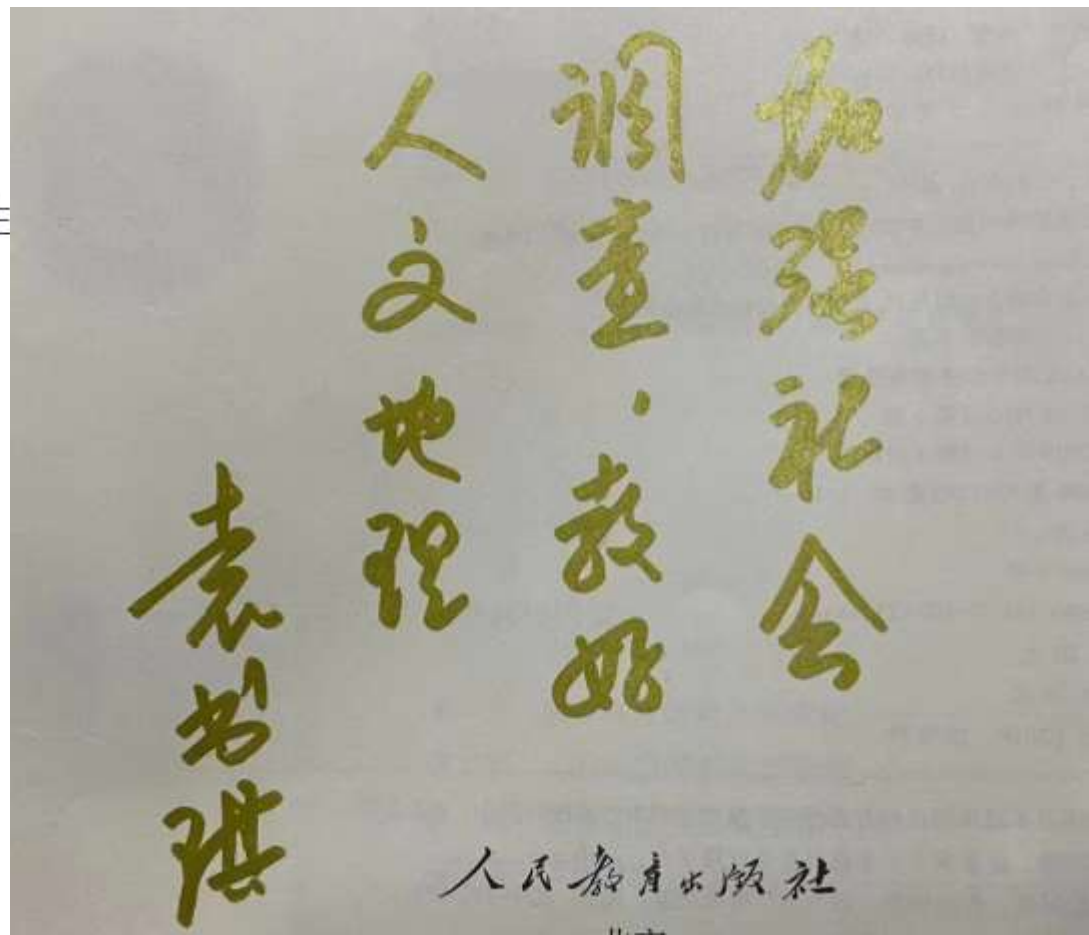 加强社会
调查，教好
人文地理
袁书琪
人民教育出版社
北京